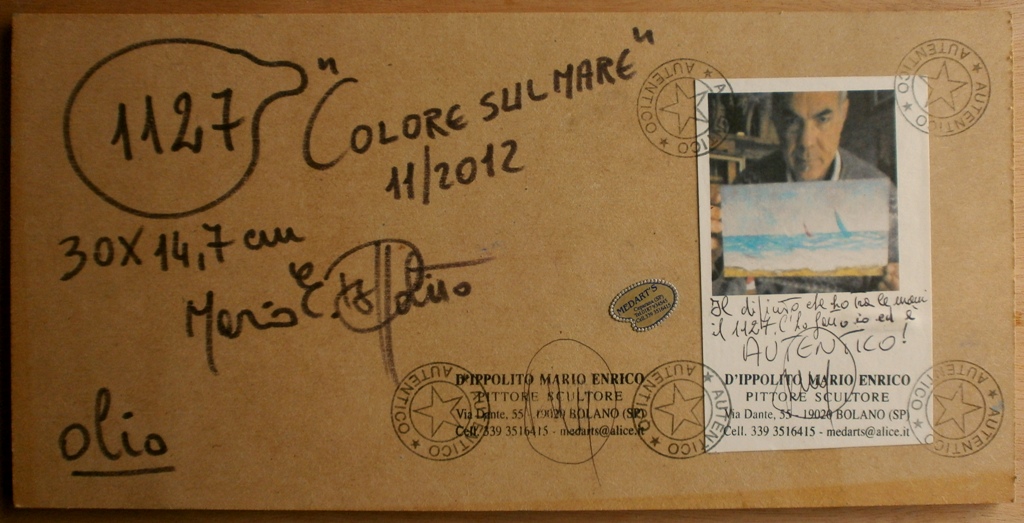 1127
"COLORE SUL MARE"
11/2012
30X14,7 cm
Mario E.
olio
MEDART'S
D'IPPOLITO MARIO ENRICO
PITTORE SCULTORE
Via Dante, 55 - 19020 BOLANO (SP)
Cell. 339 3516415 - medarts@alice.it
Il dipinto che ho tra le mani
il 1127. L'ho fatto io ed è
AUTENTICO!
D'IPPOLITO MARIO ENRICO
PITTORE SCULTORE
Via Dante, 55 - 19020 BOLANO (SP)
Cell. 339 3516415 - medarts@alice.it
AUTENTICO ★ AUTENTICO ★
AUTENTICO ★ AUTENTICO ★
AUTENTICO ★ AUTENTICO ★
AUTENTICO ★ AUTENTICO ★
AUTENTICO ★ AUTENTICO ★